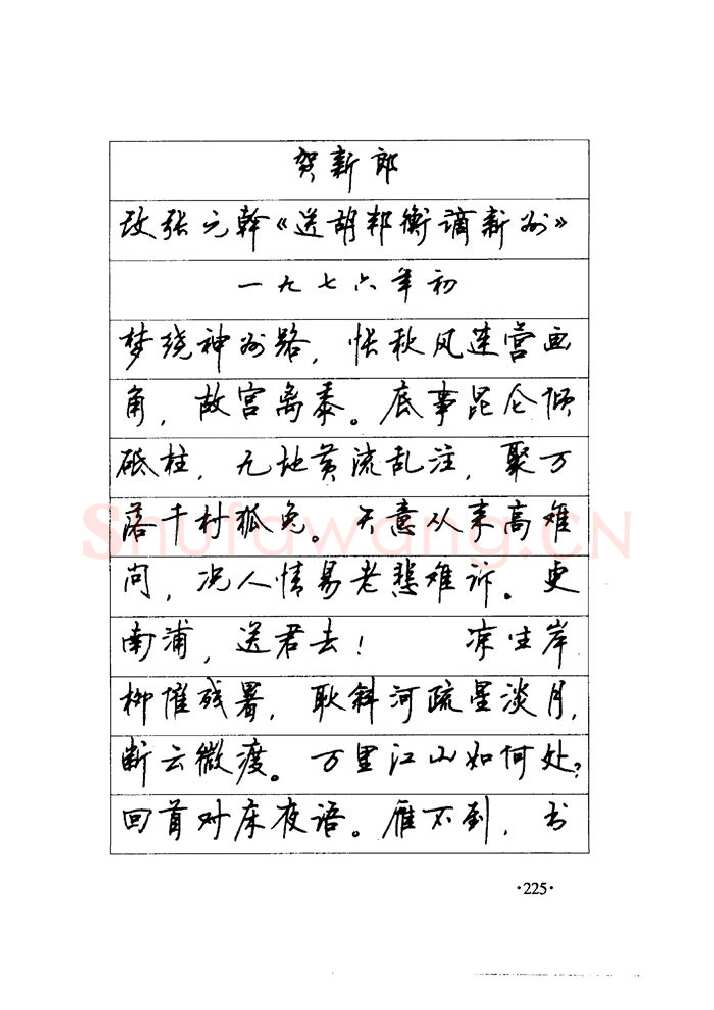 贺新郎
改张元幹《送胡邦衡谪新州》
一九七六年初
梦绕神州路，怅秋风连营画
角，故宫离黍。底事昆仑倾
砥柱，九地黄流乱注，聚万
落千村狐兔。天意从来高难
问，况人情易老悲难诉。更
南浦，送君去！ 凉生岸
柳催残暑，耿斜河疏星淡月，
断云微渡。万里江山如何处？
回首对床夜语。雁不到，书
·225·
Shufawang.CN